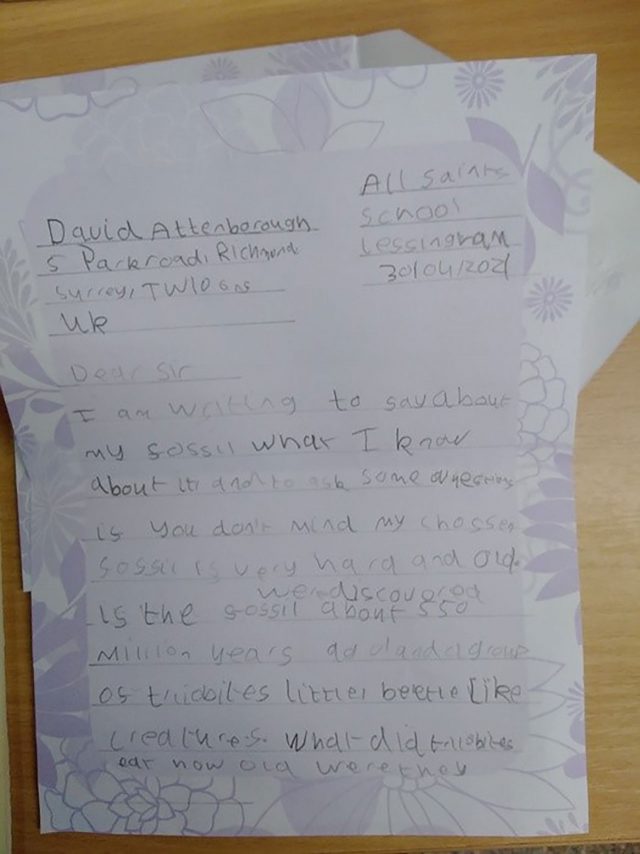 All Saints
School
Lessingham
30/04/2021
David Attenborough
5 Park road, Richmond
Surrey, TW10
UK
Dear Sir
I am writing to say about
my fossil what I know
about it and to ask some questions
if you don't mind my chossen
fossil is very hard and old.
were discovered
is the fossil about 550
million years and a group
of trilobites little beetle like
creatures. what did trilobites
eat how old were they